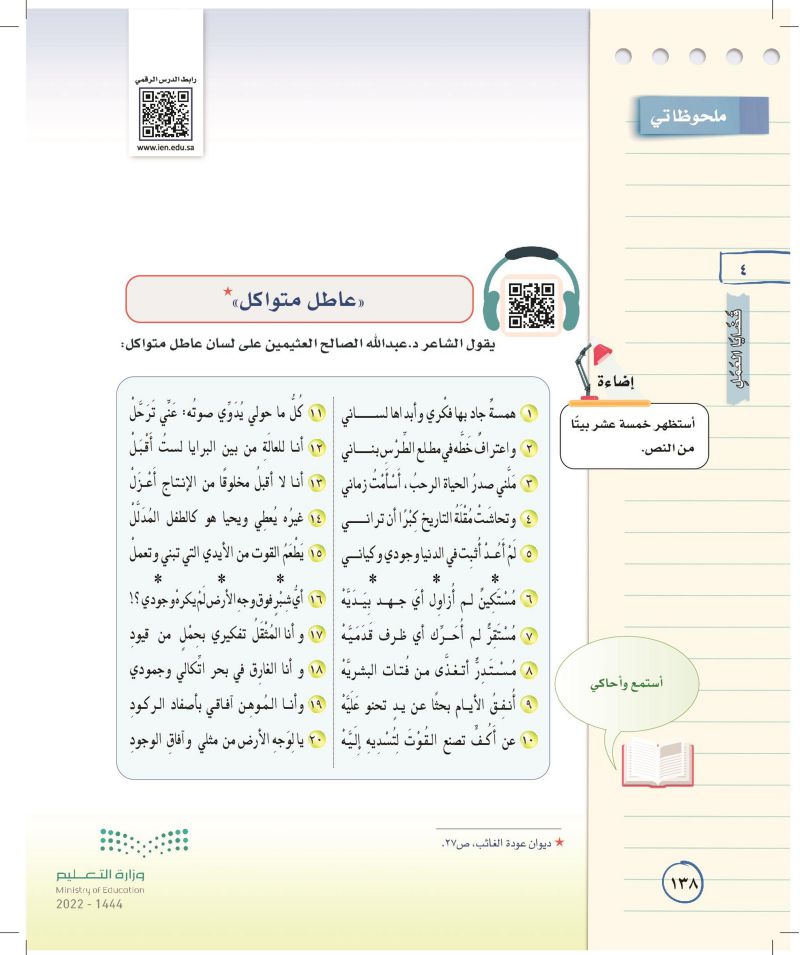 رابط الدرس الرقمي
www.ien.edu.sa
ملحوظاتي
٤
قضايا العمل
«عاطل متواكل»*
يقول الشاعر د.عبدالله الصالح العثيمين على لسان عاطل متواكل:
إضاءة
أستظهر خمسة عشر بيتًا
من النص.
١ همسةٌ جاد بها فكْري وأبداها لســـاني
٢ واعترافٌ خطَّه في مطلع الطِّرْس بنـــاني
٣ مَلَّني صدرُ الحياة الرحبُ، أَسْأَمْتُ زماني
٤ وتحاشَتْ مُقْلَةُ التاريخ كِبْرًا أن ترانـــي
٥ لَمْ أَعُــدْ أُثبِت في الدنيا وجودي وكيانـــي
* * *
٦ مُسْتَكِينٌ لـم أُزاول أيَ جـهـد بِيَـدَيَّهْ
٧ مُسْتَقِرٌّ لم أُحَـرِّك أي ظرف قَدَمَـيَّهْ
٨ مُسْـتَـدِرٌّ أتـغـذَّى مـن فُتات البشريَّهْ
٩ أُنـفِـقُ الأيـام بحثًا عن يـدٍ تحنو عَلَيَّهْ
١٠ عن أَكُـفٍّ تصنع القُـوْتَ لِتُسْدِيهِ إلَيَّـهْ
١١ كُلُّ ما حولي يُدَوِّي صوتُه: عَنِّي تَرَحَّلْ
١٢ أنـا للعالَةِ من بين البرايا لستُ أَقْبَـلْ
١٣ أنـا لا أقبلُ مخلوقًا من الإنتاج أَعْـزَلْ
١٤ غيرُه يُعطِي ويحيا هو كالطفل المُدَلَّلْ
١٥ يَطْعَمُ القوت من الأيدي التي تبني وتعملْ
* * *
١٦ أيُّ شِبْرٍ فوق وجهِ الأرض لَمْ يكره وجودي؟!
١٧ و أنا المُثْقَلُ تفكيري بِحِمْلٍ من قيودِ
١٨ و أنا الغارق في بحر اتِّكالي وجمودي
١٩ وأنـا المُوهن آفـاقي بأصفاد الركـودِ
٢٠ يا لِوَجهِ الأرض من مثلي وآفاقِ الوجودِ
أستمع وأحاكي
* ديوان عودة الغائب، ص٢٧.
وزارة التعـــليم
Ministry of Education
2022 - 1444
١٣٨